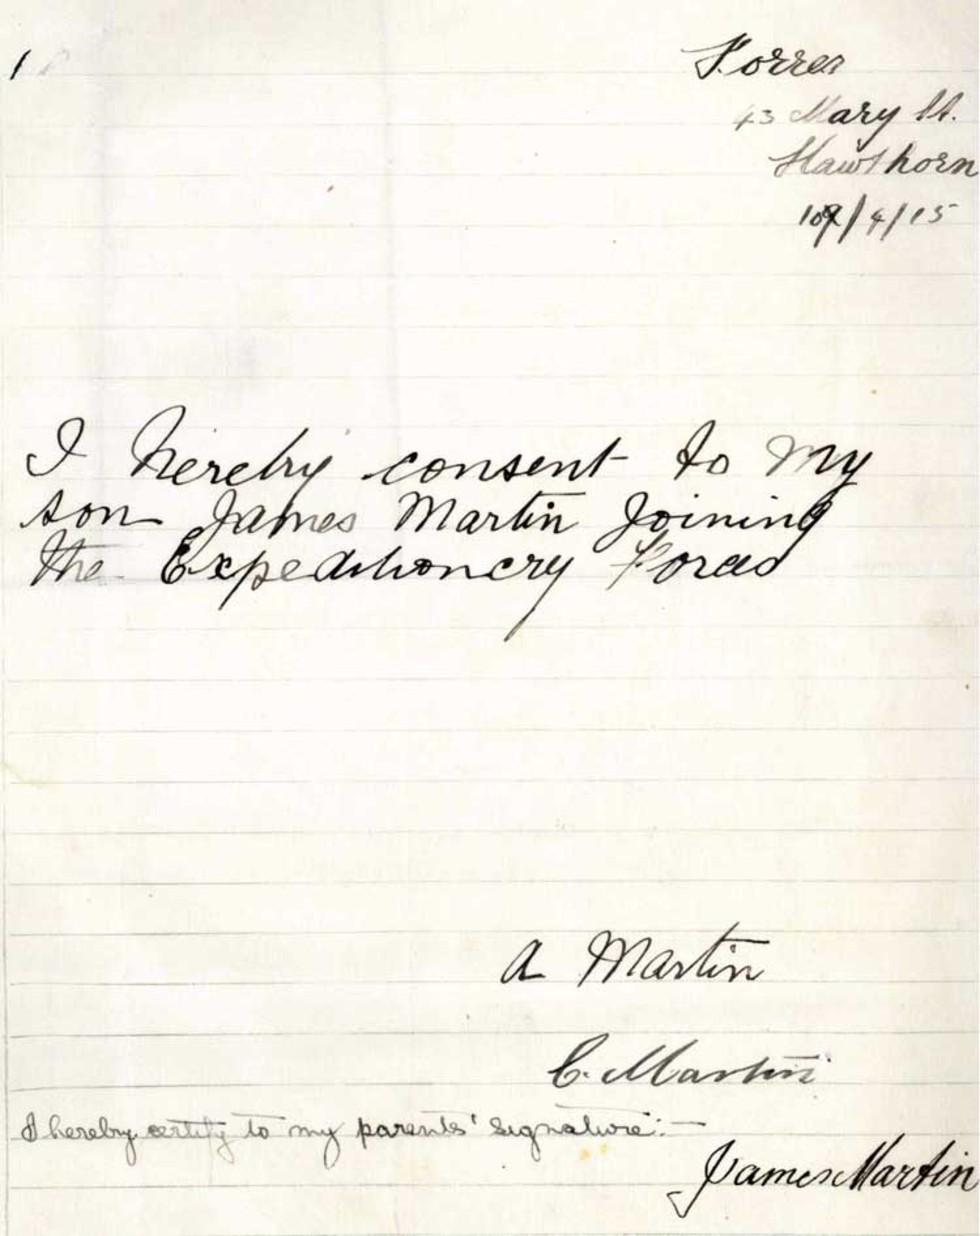 1
Forres
43 Mary St.
Hawthorn
/4/15
I hereby consent to my
son James Martin Joining
the Expeditioncry Forces
A Martin
C. Martin
I hereby certify to my parents' signature:—
James Martin